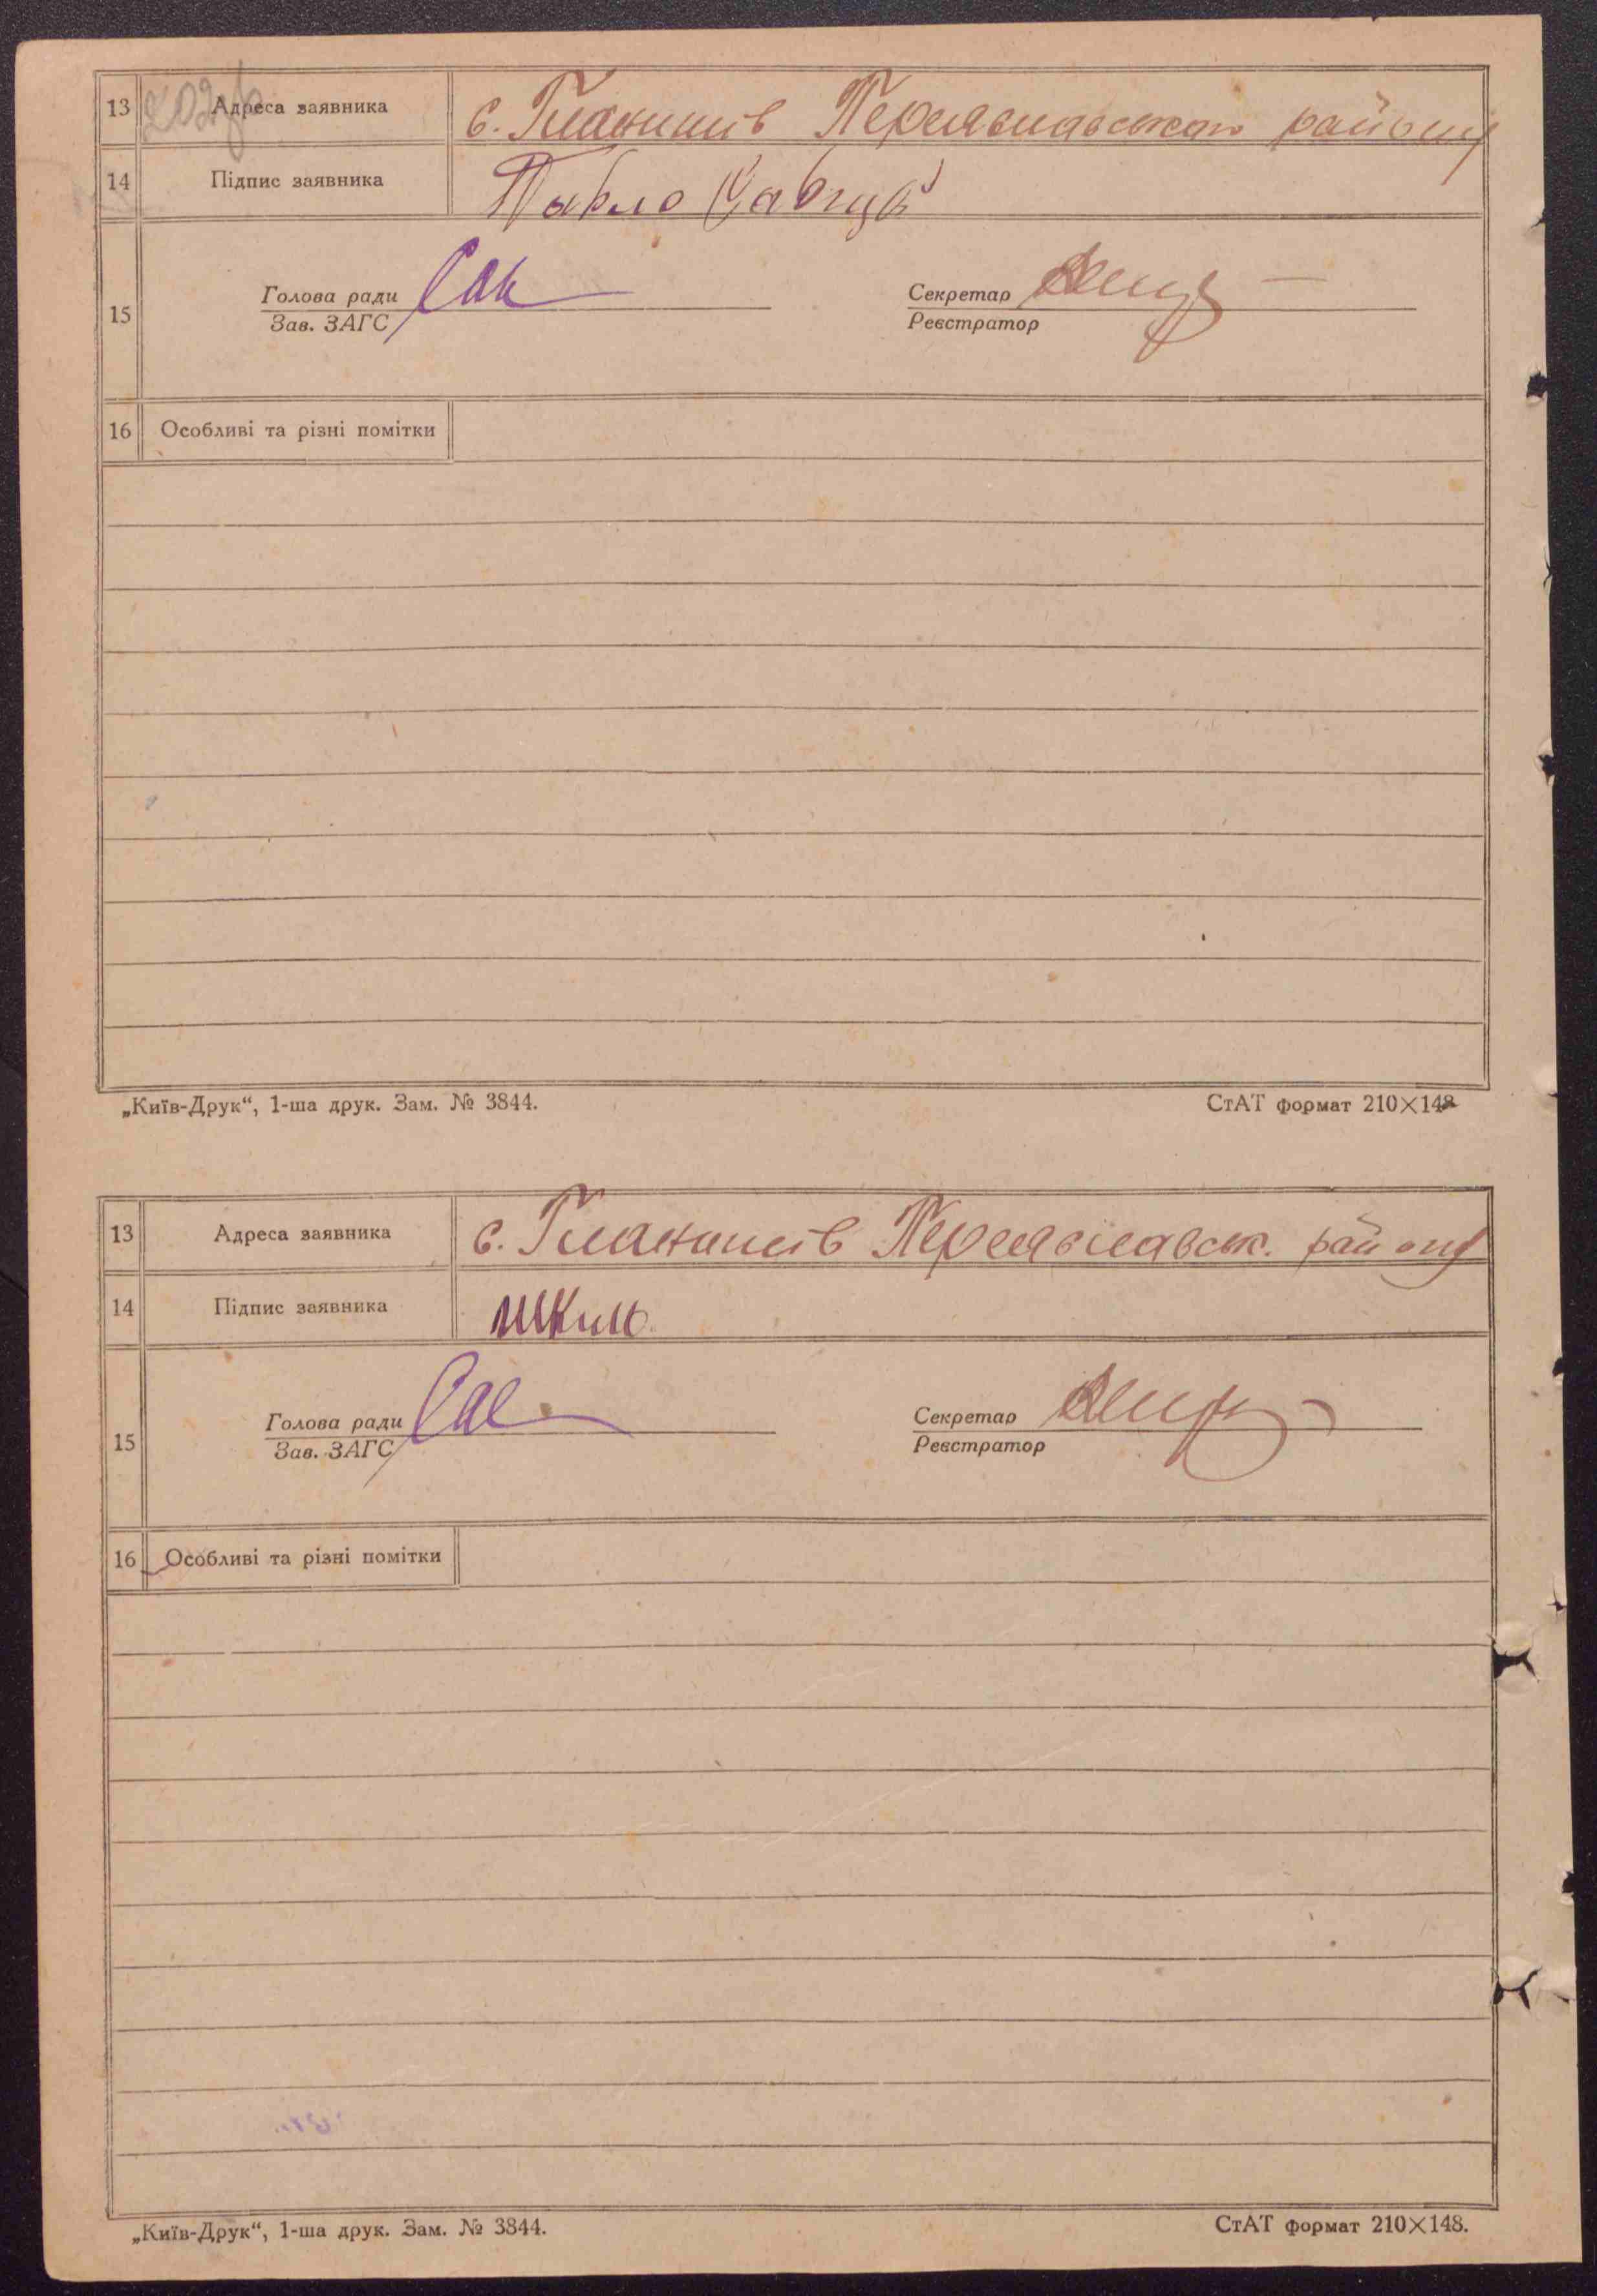 13 Адреса заявника с. Гланишів Переяславського району
14 Підпис заявника Павло
15 Голова ради Секретар
Зав. ЗАГС Реєстратор
16 Особливі та різні помітки
„Київ-Друк“, 1-ша друк. Зам. № 3844. СтАТ формат 210×148
13 Адреса заявника с. Гланишів Переяславськ. району
14 Підпис заявника Шкиль
15 Голова ради Секретар
Зав. ЗАГС Реєстратор
16 Особливі та різні помітки
„Київ-Друк“, 1-ша друк. Зам. № 3844. СтАТ формат 210×148.